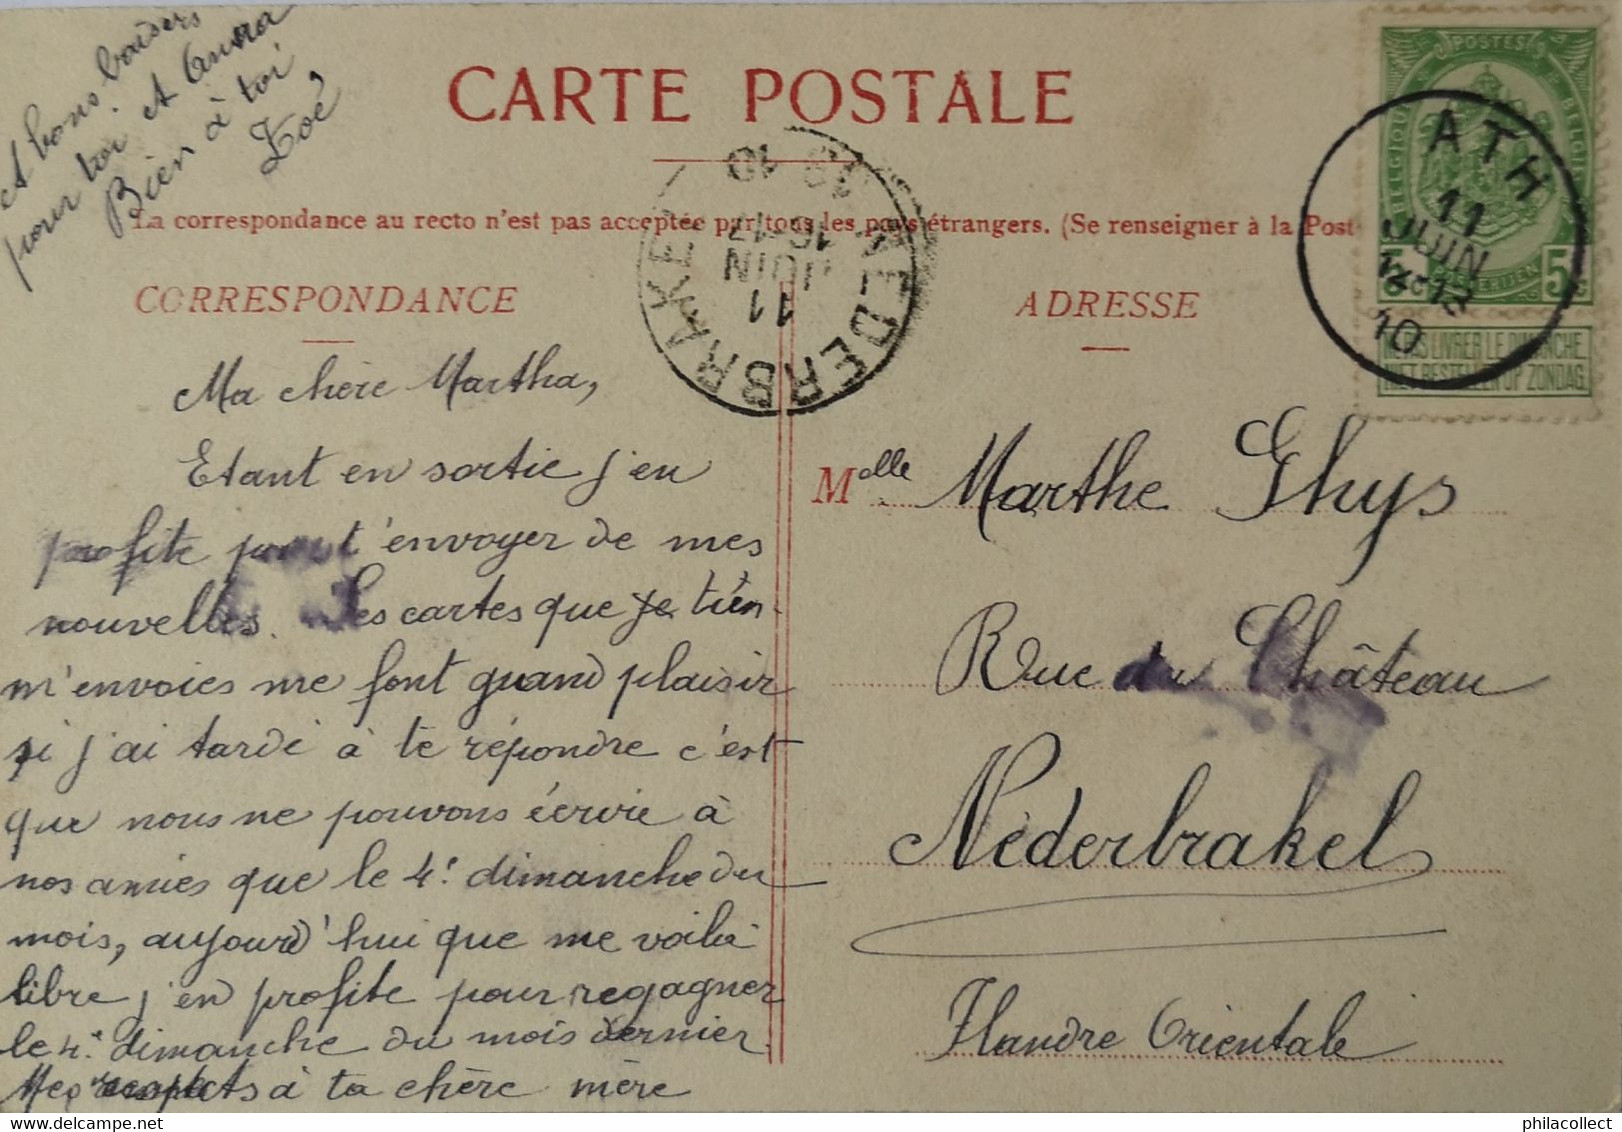 CARTE POSTALE
La correspondance au recto n'est pas acceptée par tous les pays étrangers. (Se renseigner à la Post
CORRESPONDANCE
ADRESSE
Ma chère Martha,
Etant en sortie j'en
profite pour t'envoyer de mes
nouvelles. Les cartes que tu
m'envoies me font grand plaisir
si j'ai tardé à te répondre c'est
que nous ne pouvons écrire à
nos amies que le 4e dimanche du
mois, aujourd'hui que me voilà
libre j'en profite pour regagner
le 4e dimanche du mois dernier.
Mes respects à ta chère mère
et bons baisers
pour toi et Anna
Bien à toi,
Zoé
Melle Marthe Ghys
Rue du Château
Néderbrakel
Flandre Orientale
POSTES
BELGIQUE
BELGIE
5c
5c
NE PAS LIVRER LE DIMANCHE
NIET BESTELLEN OP ZONDAG
ATH
11
JUIN
10
NEDERBRAKEL
11
JUIN
16-17
1910
philacollect